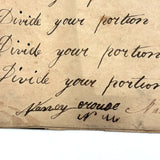 Divide your portion
Divide your portion
Divide your portion
Nancy Crouse N